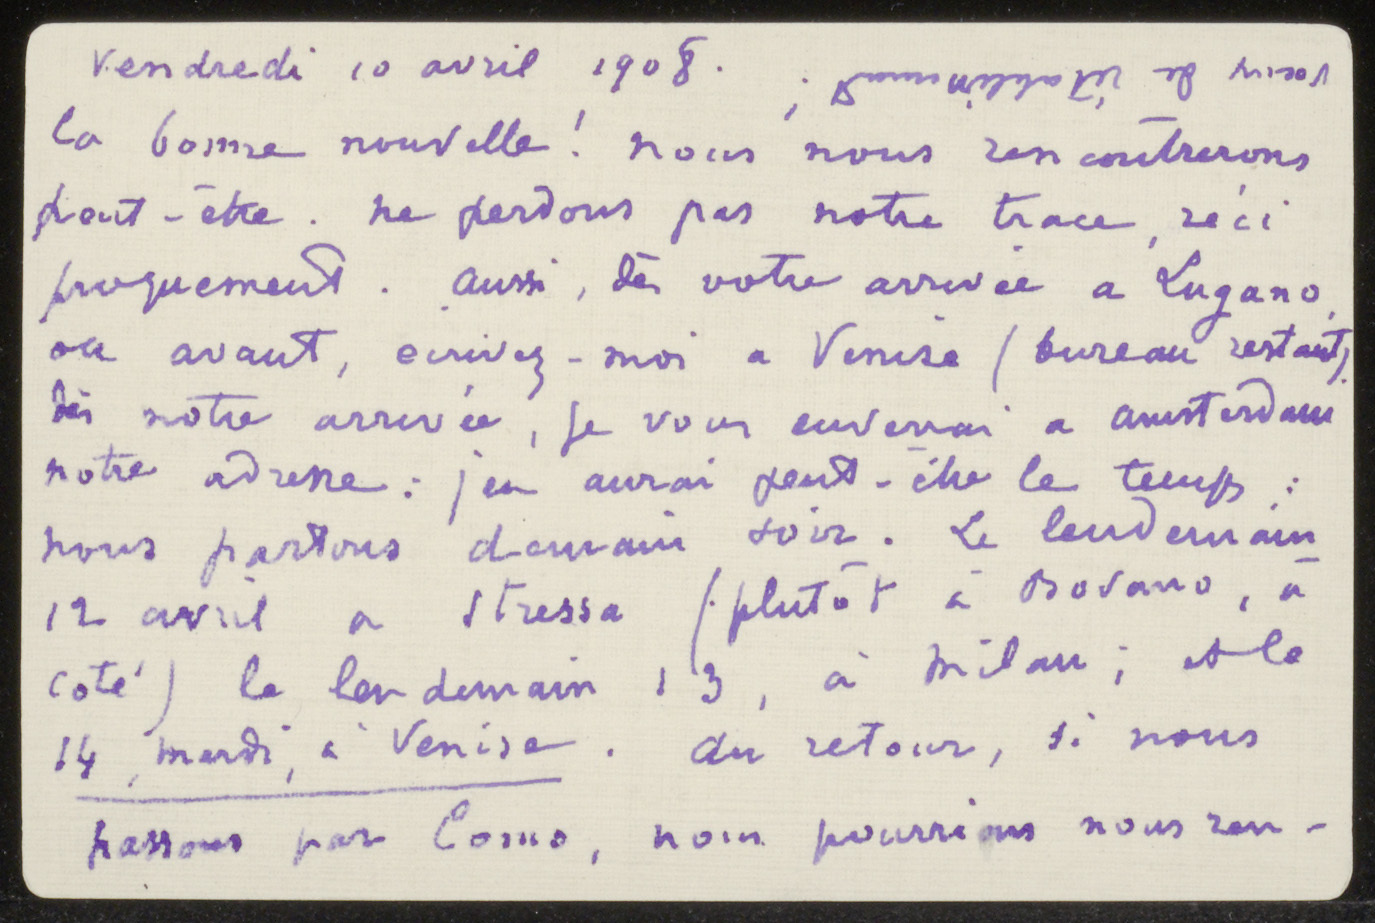 Vendredi 10 avril 1908.
la bonne nouvelle! nous nous rencontrerons
peut-être. ne perdons pas notre trace, réci
proquement. Aussi, dès votre arrivée a Lugano,
ou avant, écrivez-moi a Venise (bureau restant).
dès notre arrivée, je vous enverrai a Amsterdam
notre adresse: j'en aurai peut-être le temps:
nous partons demain soir. Le lendemain
12 avril a Stressa (plutôt à Bovano, à
coté) le lendemain 13, à Milan; et le
14, mardi, à Venise. Au retour, si nous
passons par Como, nous pourrions nous ren-
rétablissement;